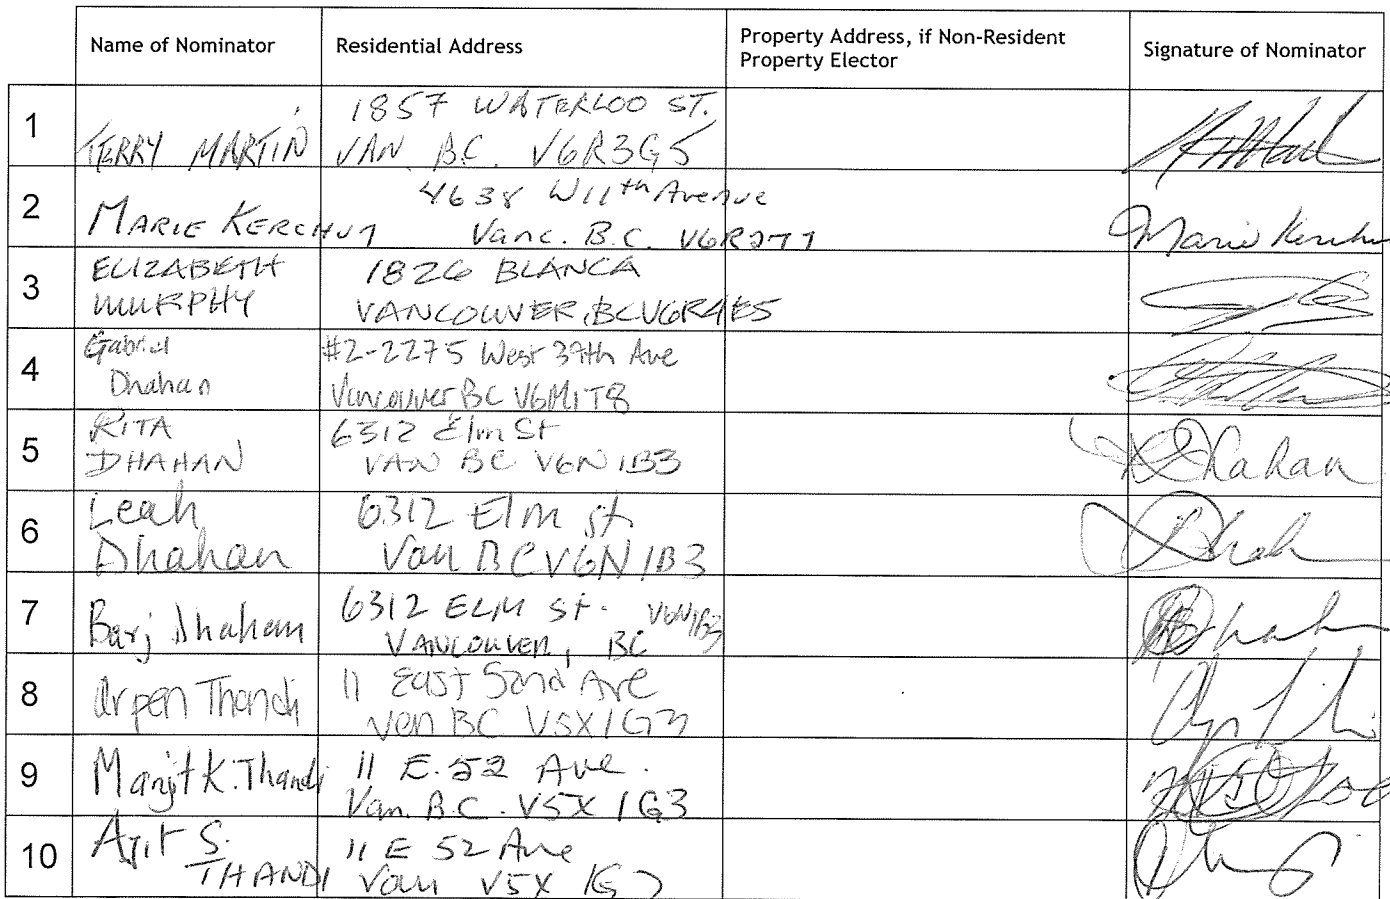 Name of Nominator
Residential Address
Property Address, if Non-Resident
Property Elector
Signature of Nominator
1
TERRY MARTIN
1857 WATERLOO ST.
VAN B.C. V6R3G5
2
MARIE KERCHUM
4638 W 11th Avenue
Vanc. B.C. V6R2
Marie Kerchum
3
ELIZABETH
MURPHY
1826 BLANCA
VANCOUVER, BC V6R4E5
4
Gabriel
Dhahan
#2-2275 West 37th Ave
Vancouver BC V6M1T8
5
RITA
DHAHAN
6312 Elm St
VAN BC V6N 1B3
Dhahan
6
Leah
Dhahan
6312 Elm st
Van BC V6N 1B3
7
Barj Dhahan
6312 ELM St. V6N1B3
VANCOUVER, BC
8
Arpen Thandi
11 East 52nd Ave
Van BC V5X1G3
9
Manjit K. Thandi
11 E. 52 Ave.
Van. B.C. V5X 1G3
10
Ajit S.
THANDI
11 E 52 Ave
Van V5X 1G3